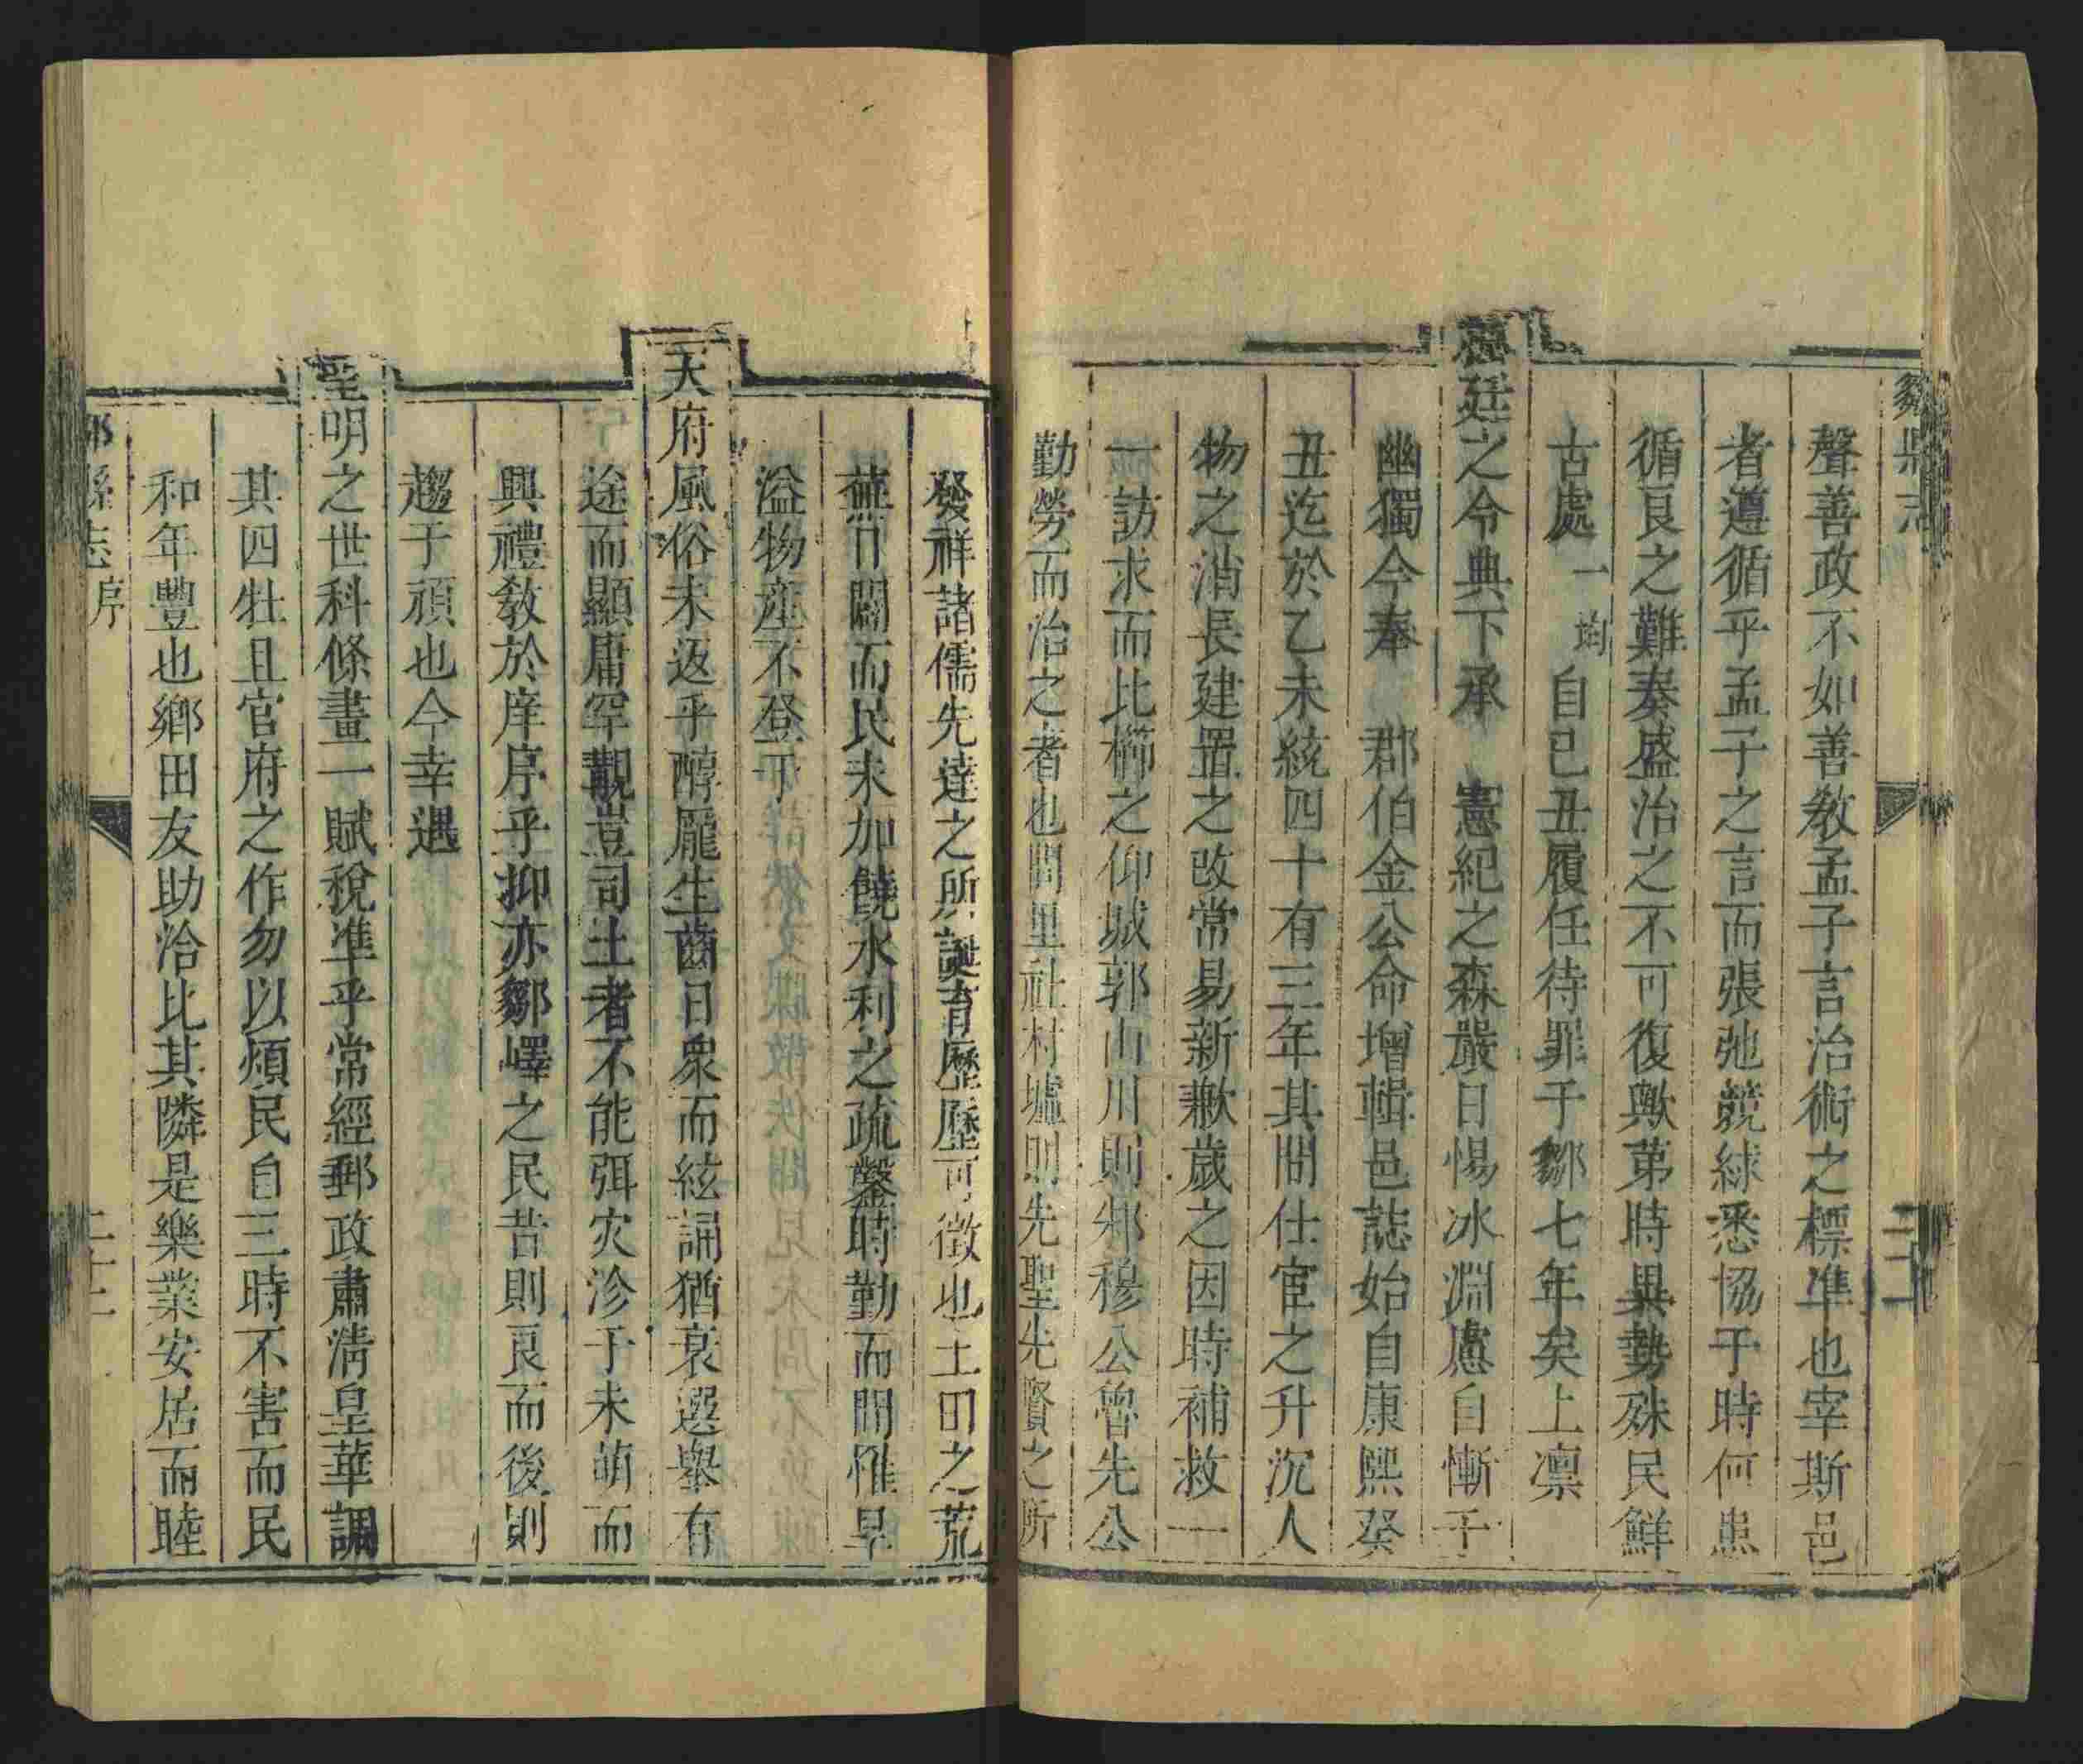 鄒縣志
聲善政不如善教孟子言治術之標準也宰斯邑
者遵循乎孟子之言而張弛兢絿悉協于時何患
循良之難奏盛治之不可復歟苐時異勢殊民鮮
古處一均自己丑履任待罪于鄒七年矣上凛
廷之令典下承　憲紀之森嚴日惕冰淵慮自慚于
幽獨今奉　郡伯金公命增輯邑誌始自康熙癸
丑迄於乙未統四十有三年其間仕宦之升沉人
物之消長建置之改常易新歉歲之因時補救一
一訪求而比櫛之仰城郭山川則邾穆公魯先公
勤勞而治之者也閭里社村墟則先聖先賢之所
發祥諸儒先達之所誕育歷歷可徵也土田之荒
蕪日闢而民未加饒水利之疏鑿時勤而間罹旱
溢物産不登于
天府風俗未返乎醇龎生齒日衆而絃誦猶衰選舉有
途而顯庸罕覯豈司土者不能弭灾沴于未萌而
興禮教於庠序乎抑亦鄒嶧之民昔則良而後則
趨于頑也今幸遇
聖明之世科條畫一賦稅準乎常經郵政肅清皇華調
其四牡且官府之作勿以煩民自三時不害而民
和年豐也鄉田友助洽比其隣是樂業安居而睦
縣志
序